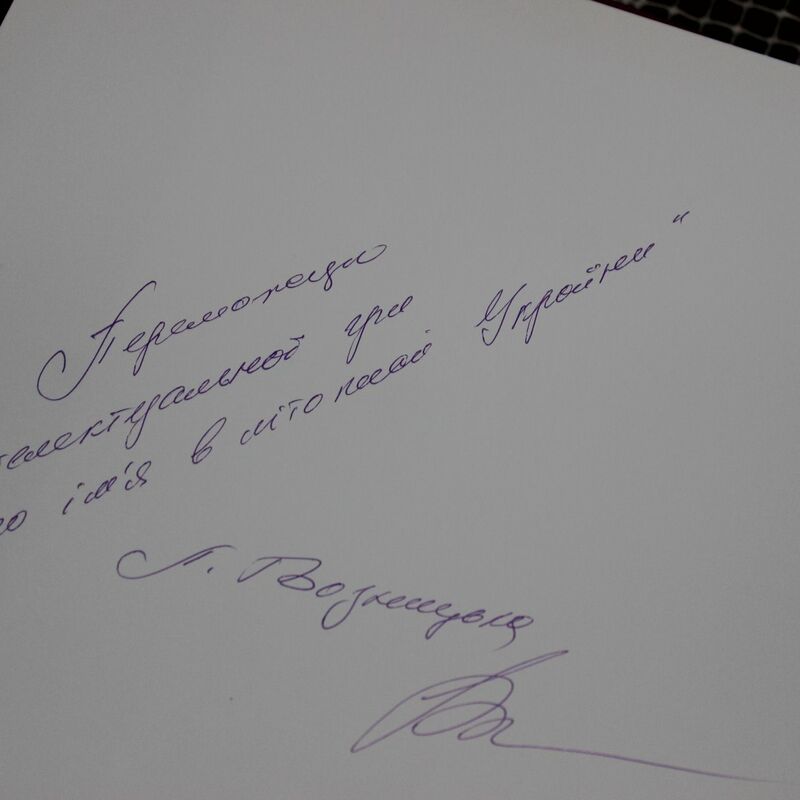 Переможцю
телектуальної гри
о ім'я в літописі України"
Л. Возницька